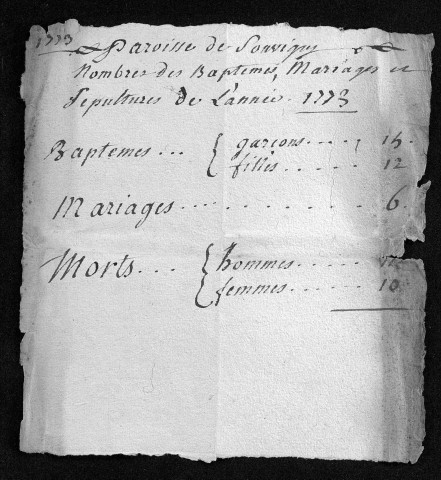 1773
Paroisse de Souvigny
Nombres des Baptemes, Mariages et
Sepultures de L'année 1773
Baptemes ... { garçons ....
filles .... 12
Mariages .......... 6
Morts ... { hommes .....
femmes ..... 10